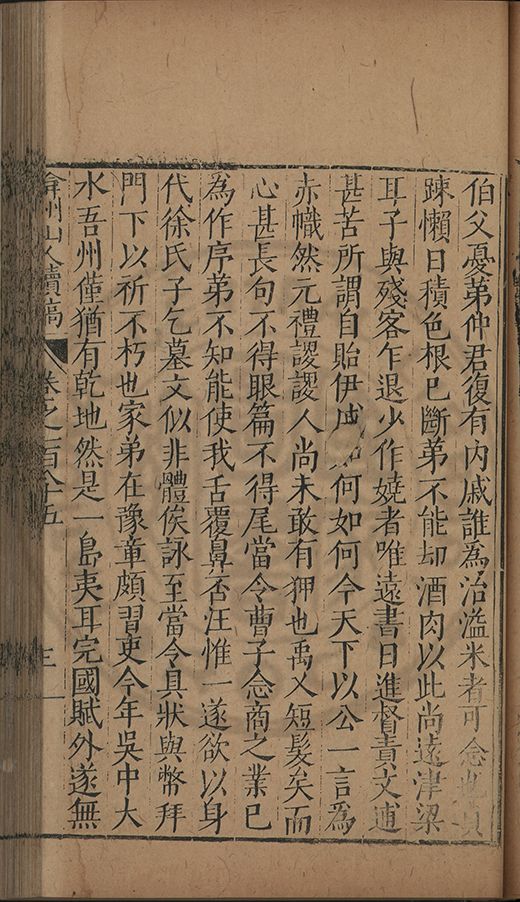 伯父憂弟仲君復有內戚誰為治溢米者可念此
踈懶日積色根已斷弟不能却酒肉以此尚遠津梁
耳子與殘客乍退少作嬈者唯遠書日進督責文逋
甚苦所謂自貽伊戚如何如何今天下以公一言為
赤幟然元禮謖謖人尚未敢有狎也禹乂短髮矣而
心甚長句不得眼篇不得尾當令曹子念商之業已
為作序弟不知能使我舌覆鼻否汪惟一遂欲以身
代徐氏子乞墓文似非體俟詠至當令具狀與幣拜
門下以祈不朽也家弟在豫章頗習吏今年吳中大
水吾州僅猶有乾地然是一島夷耳完國賦外遂無
弇州山人續稿 卷之一百八十五 三